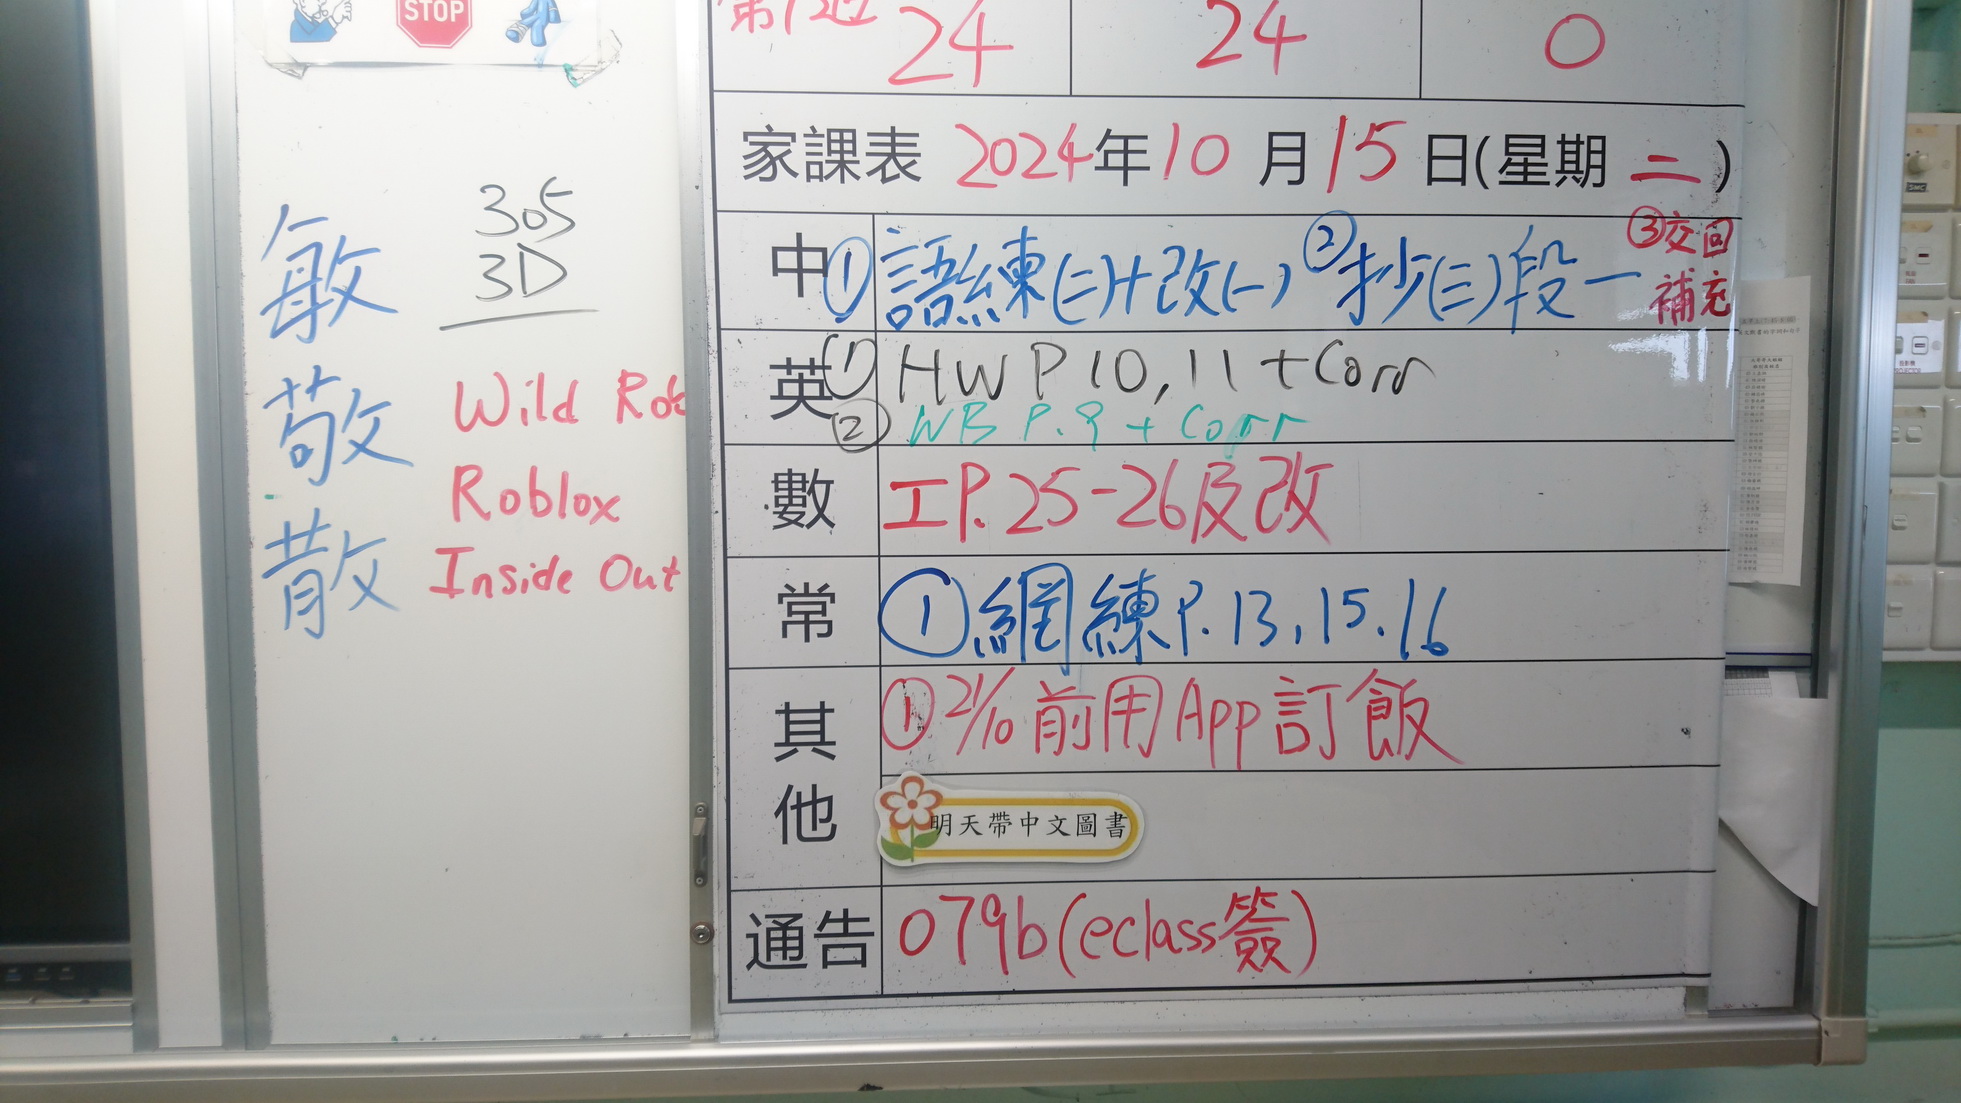 STOP
305
3D
敏
敬
散
Wild Rob
Roblox
Inside Out
24 24 0
家課表 2024年10月15日(星期二)
中 ①語練(二)+改(一) ②抄(三)段一 ③交回補充
英 ① HW P 10, 11 + Corr
② WB P.9 + Corr
數 工P.25-26及改
常 ①網練P.13,15,16
其他 ①21/10前用App訂飯
明天帶中文圖書
通告 079b(eclass簽)